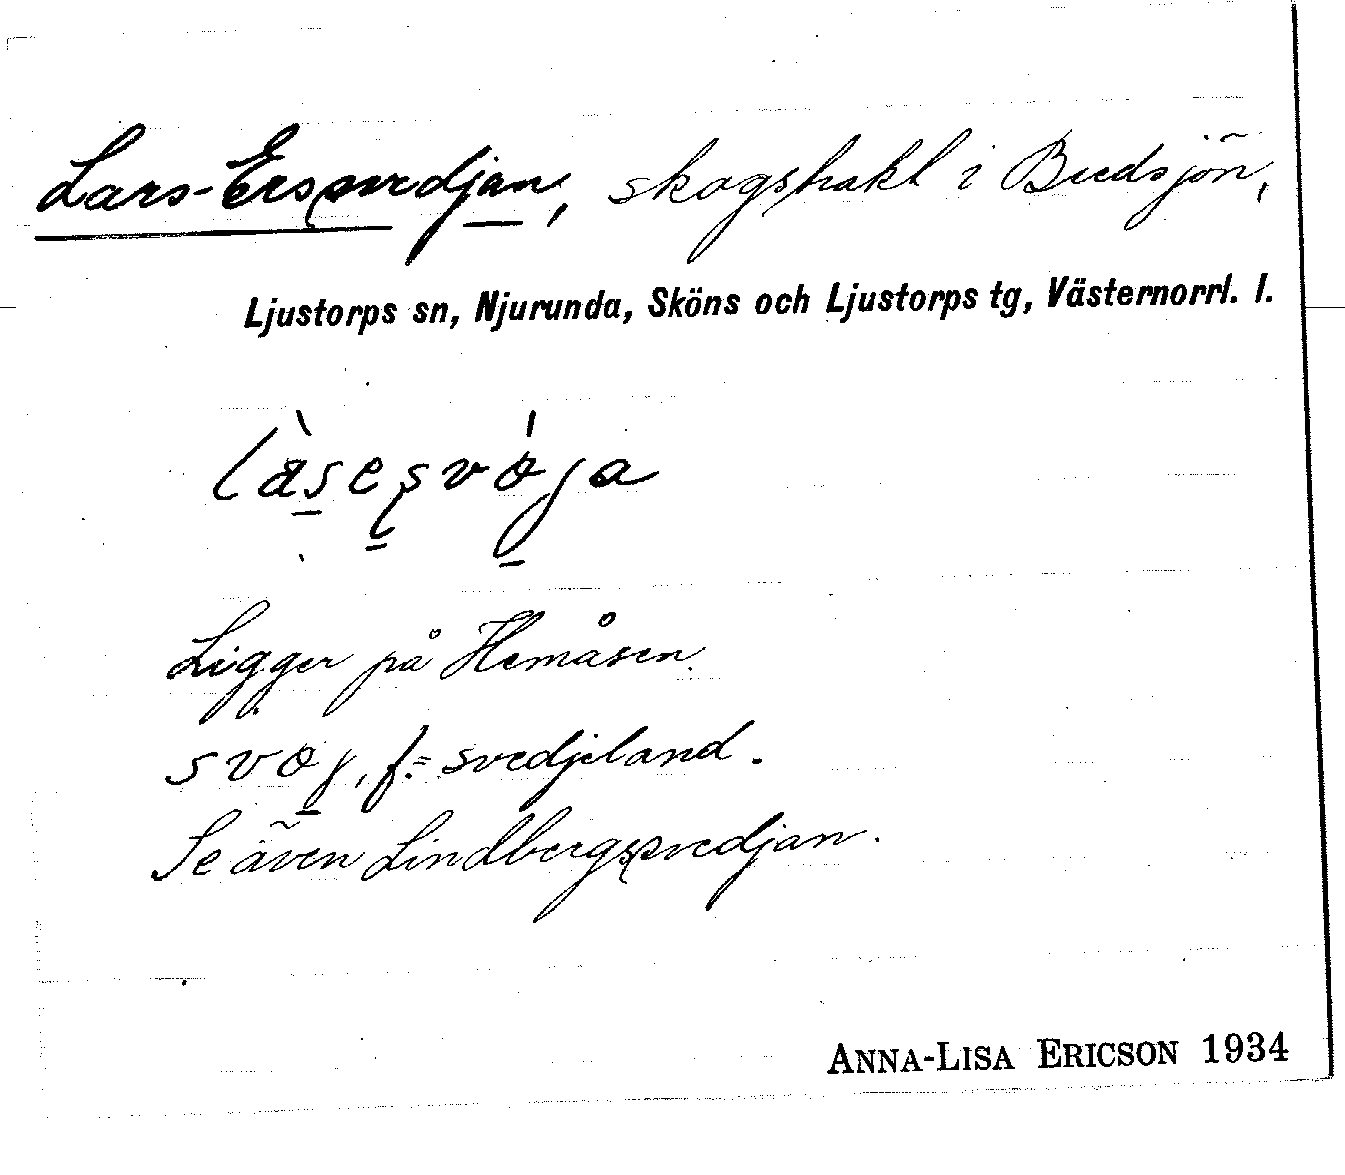 Lars-Erssvedjan, skogstrakt i Bredsjön,
Ljustorps sn, Njurunda, Sköns och Ljustorps tg, Västernorrl. l.
Ligger på Hemåsen.
svöj, f. = svedjeland.
Se även Lindbergssvedjan.
ANNA-LISA ERICSON 1934